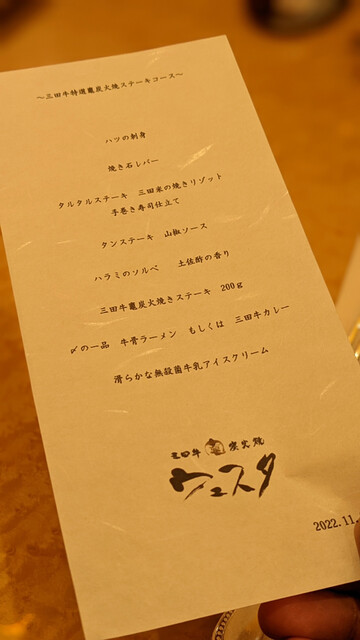 ～三田牛特選竈炭火焼ステーキコース～
ハツの刺身
焼き石レバー
タルタルステーキ　三田米の焼きリゾット
手巻き寿司仕立て
タンステーキ　山椒ソース
ハラミのソルベ　土佐酢の香り
三田牛竈炭火焼きステーキ　200ｇ
〆の一品　牛骨ラーメン　もしくは　三田牛カレー
滑らかな無殺菌牛乳アイスクリーム
三田牛 竈 炭火焼
ウェスタ
2022.11.